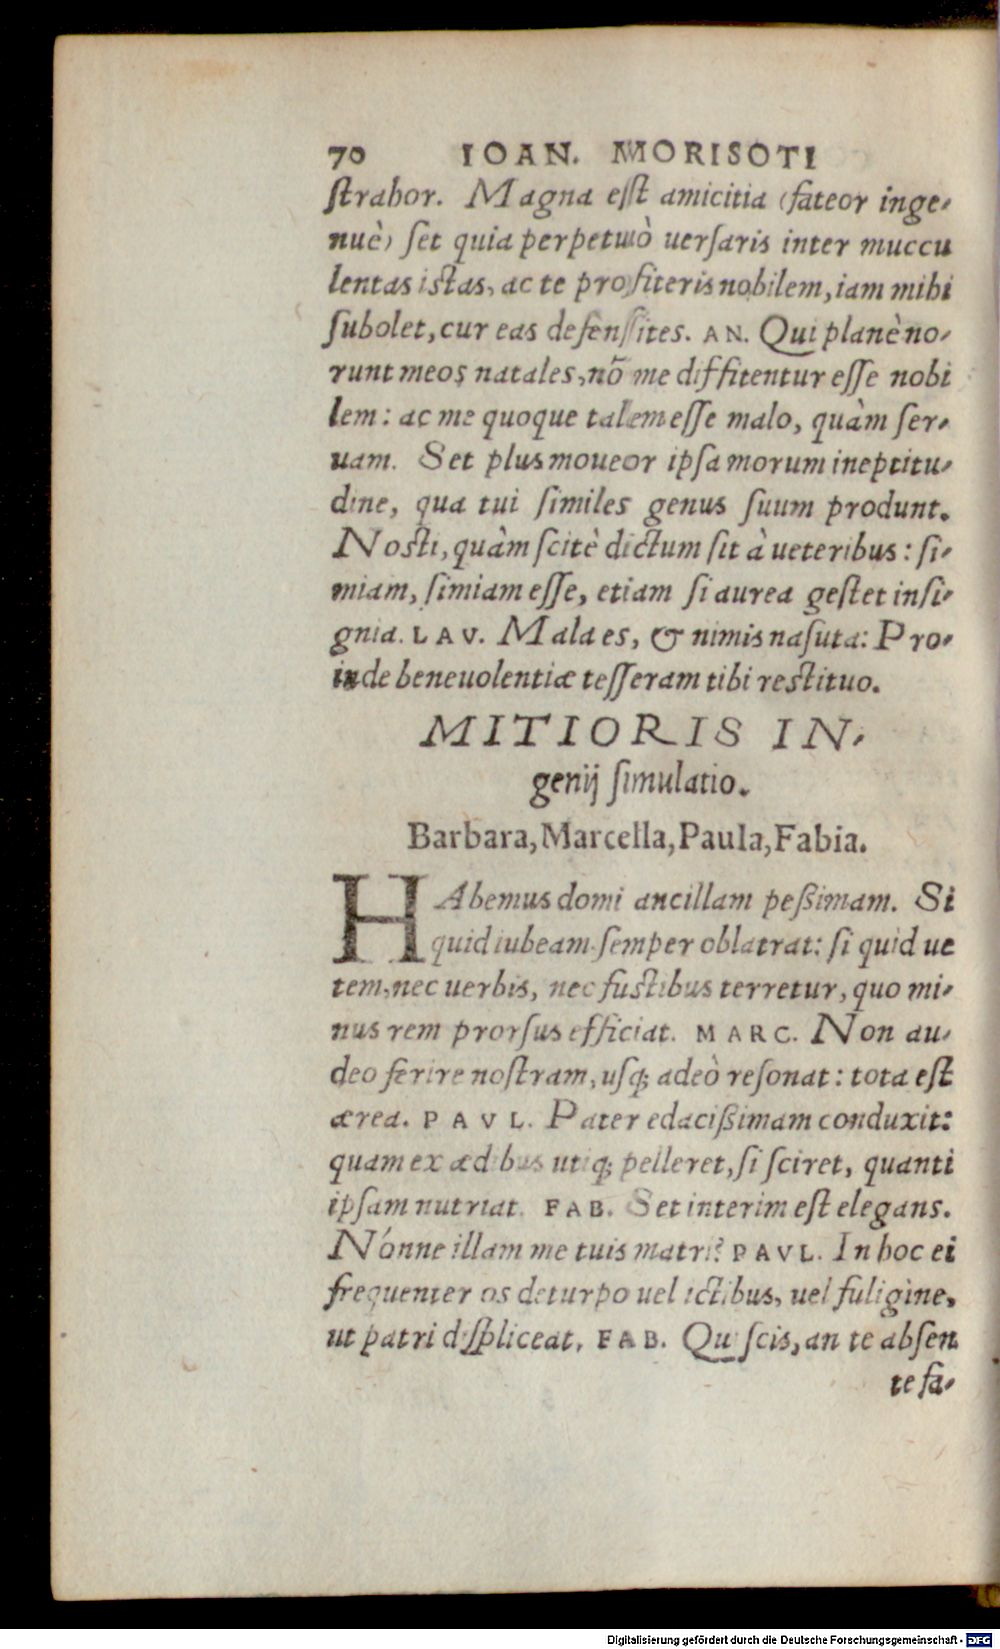 70 IOAN. MORISOTI
ſtrabor. Magna eſſt amicitia (fateor inge-
nuè) ſet quia perpetuuò uerſaris inter muccu
lentas istas, ac te profiteris nobilem, iam mihi
ſubolet, cur eas defenſſites. AN. Qui planè no-
runt meos natales, nõ me diffitentur eſſe nobi
lem: ac me quoque talem eſſe malo, quàm ſer-
uam. Set plus moueor ipſa morum ineptitu-
dine, qua tui ſimiles genus ſuum produnt.
Nosti, quàm ſcitè dictum ſit à ueteribus: ſi-
miam, ſimiam eſſe, etiam ſi aurea geſtet inſi-
gnia. LAV. Mala es, & nimis naſuta: Pro-
inde beneuolentiæ teſſeram tibi restituo.
MITIORIS IN-
genij ſimulatio.
Barbara, Marcella, Paula, Fabia.
HAbemus domi ancillam peßimam. Si
quid iubeam, ſemper oblatrat: ſi quid ue
tem, nec uerbis, nec fustibus terretur, quo mi-
nus rem prorſus efficiat. MARC. Non au-
deo ferire noſtram, uſq; adeò reſonat: tota eſt
ærea. PAVL. Pater edacißimam conduxit:
quam ex ædibus utiq; pelleret, ſi ſciret, quanti
ipſam nutriat. FAB. Set interim eſt elegans.
Nónne illam metuis matri? PAVL. In hoc ei
frequenter os deturpo uel ictibus, uel fuligine,
ut patri diſpliceat. FAB. Qui ſcis, an te abſen
te fa-
Digitalisierung gefördert durch die Deutsche Forschungsgemeinschaft - DFG